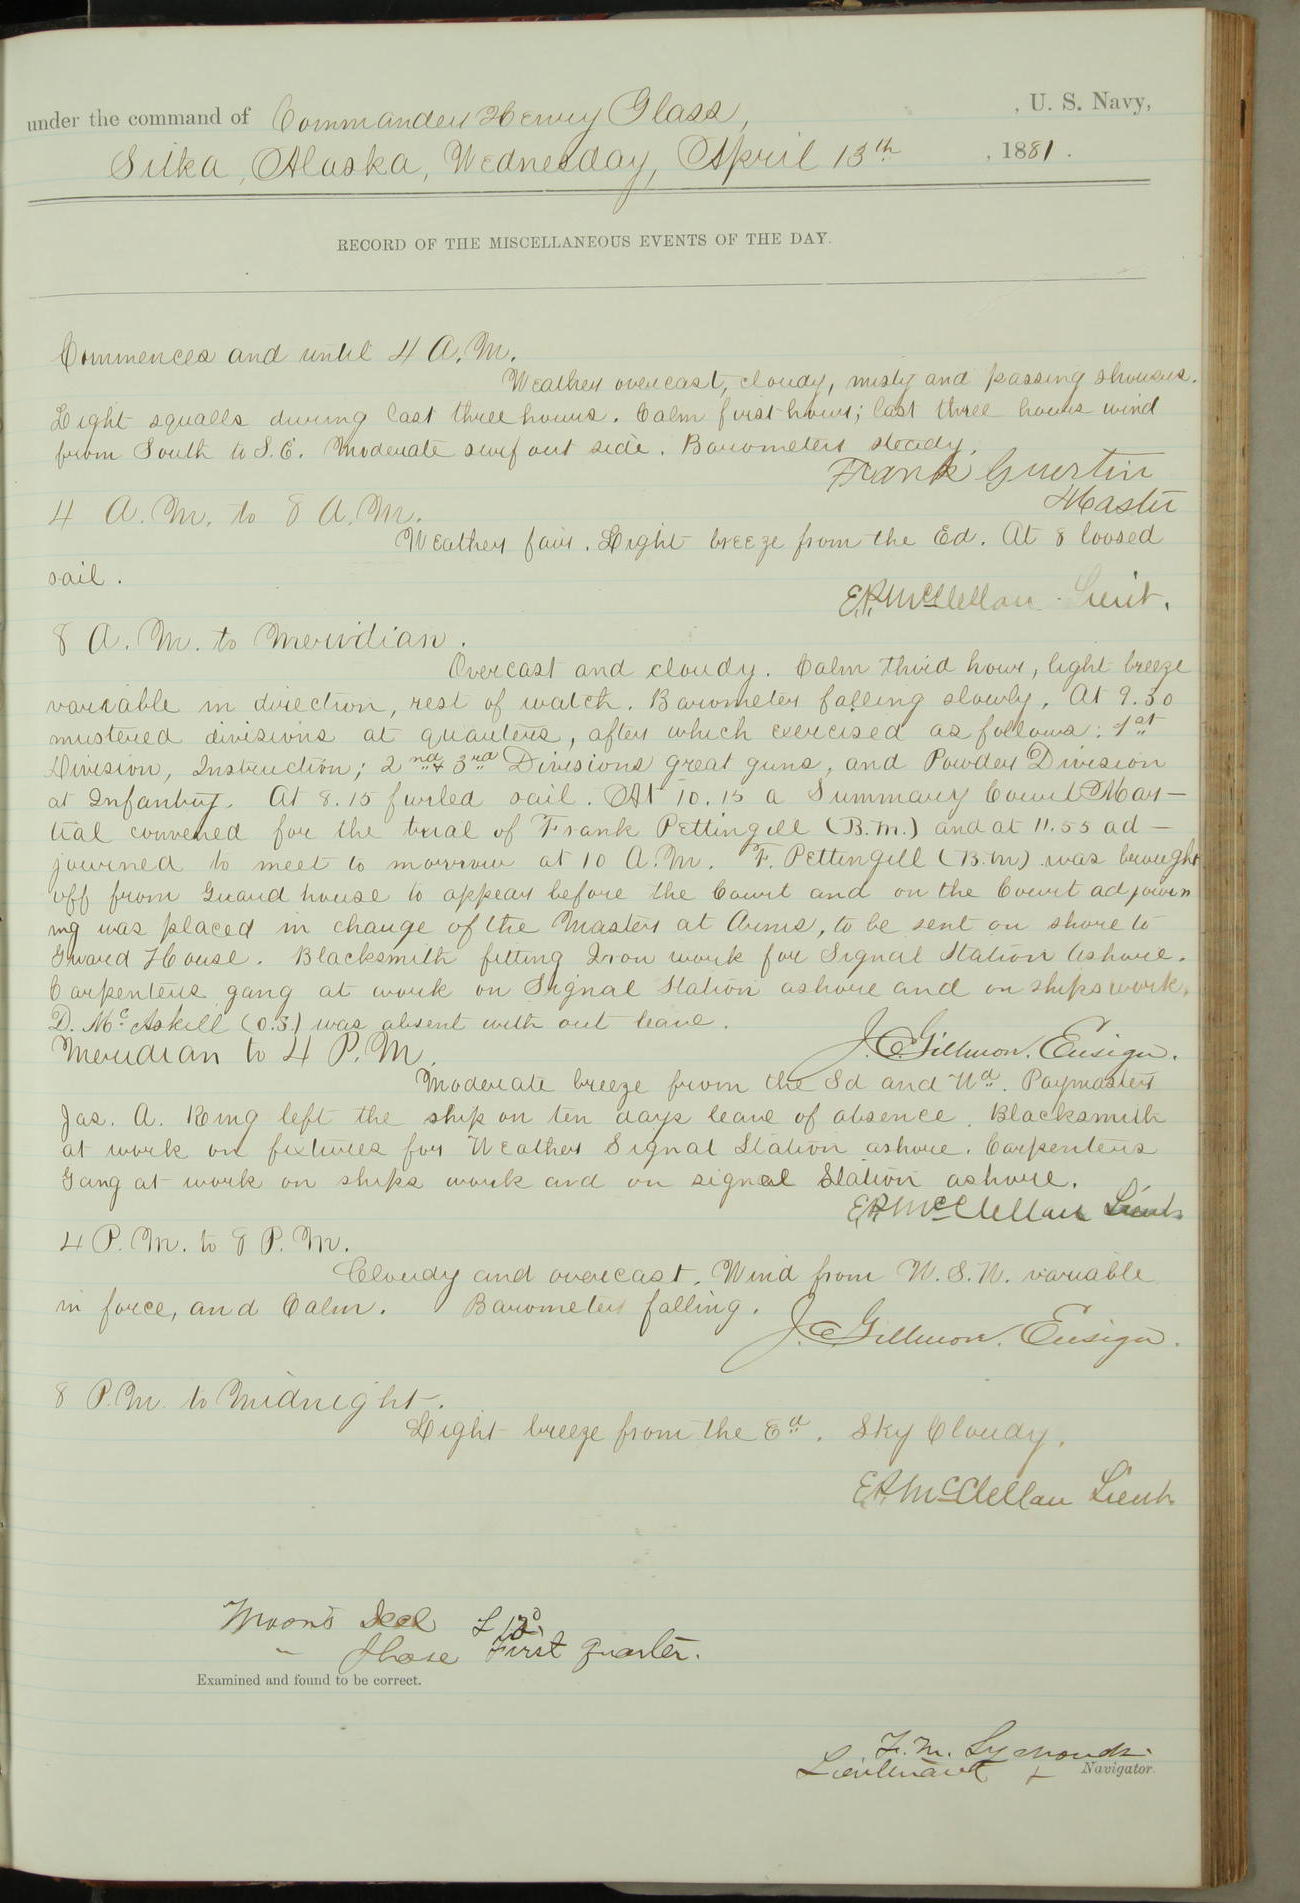 under the command of Commander Henry Glass, , U. S. Navy,
Sitka, Alaska, Wednesday, April 13th , 1881.
RECORD OF THE MISCELLANEOUS EVENTS OF THE DAY.
Commences and until 4 A.M.
Weather overcast, cloudy, misty and passing showers.
Light squalls during last three hours. Calm first hour; last three hours wind
from South to S.E. Moderate surf out side. Barometers steady.
Frank Guertin
Master
4 A.M. to 8 A.M.
Weather fair. Light breeze from the Ed. At 8 loosed
sail.
E.P. McClellan Lieut.
8 A.M. to Meridian.
Overcast and cloudy. Calm third hour, light breeze
variable in direction, rest of watch. Barometer falling slowly. At 9.30
mustered divisions at quarters, after which exercised as follows: 1st
Division, Instruction; 2nd & 3rd Divisions great guns, and Powder Division
at Infantry. At 8.15 furled sail. At 10.15 a Summary Court Mar-
tial convened for the trial of Frank Pettingill (B.M.) and at 11.55 ad-
journed to meet to morrow at 10 A.M. F. Pettingill (B.M) was brought
off from Guard house to appear before the Court and on the Court adjourn
ing was placed in charge of the Master at Arms, to be sent on shore to
Guard House. Blacksmith fitting Iron work for Signal Station Ashore.
Carpenters gang at work on Signal Station ashore and on ships work.
D. McAskill (O.S.) was absent with out leave.
J.C. Gillmor. Ensign.
Meridian to 4 P.M.
Moderate breeze from the Sd and Wd. Paymaster
Jas. A. Ring left the ship on ten days leave of absence. Blacksmith
at work on fixtures for Weather Signal Station ashore. Carpenters
Gang at work on ships work and on signal Station ashore.
E.P. McClellan Lieut.
4 P.M. to 8 P.M.
Cloudy and overcast. Wind from W.S.W. variable
in force, and Calm. Barometer falling.
J.C. Gillmor. Ensign.
8 P.M. to Midnight.
Light breeze from the Ed. Sky Cloudy.
E.P. McClellan Lieut.
Moon's Decl
" Phase First quarter.
Examined and found to be correct.
F. M. Symonds
Lieutenant & Navigator.